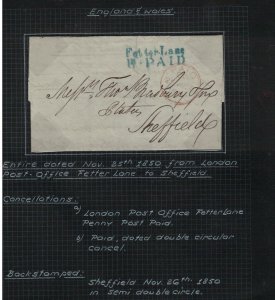 England & Wales
Fetter Lane
1D PAID
Messrs Thos
Sheffield
Entire dated Nov. 25th 1850 from London
Post Office Fetter Lane to Sheffield.
Cancellations:
a) London Post Office Fetter Lane
Penny Post Paid
b) Paid, dated double circular
cancel.
Backstamped:
Sheffield Nov 26th 1850
in semi double circle.